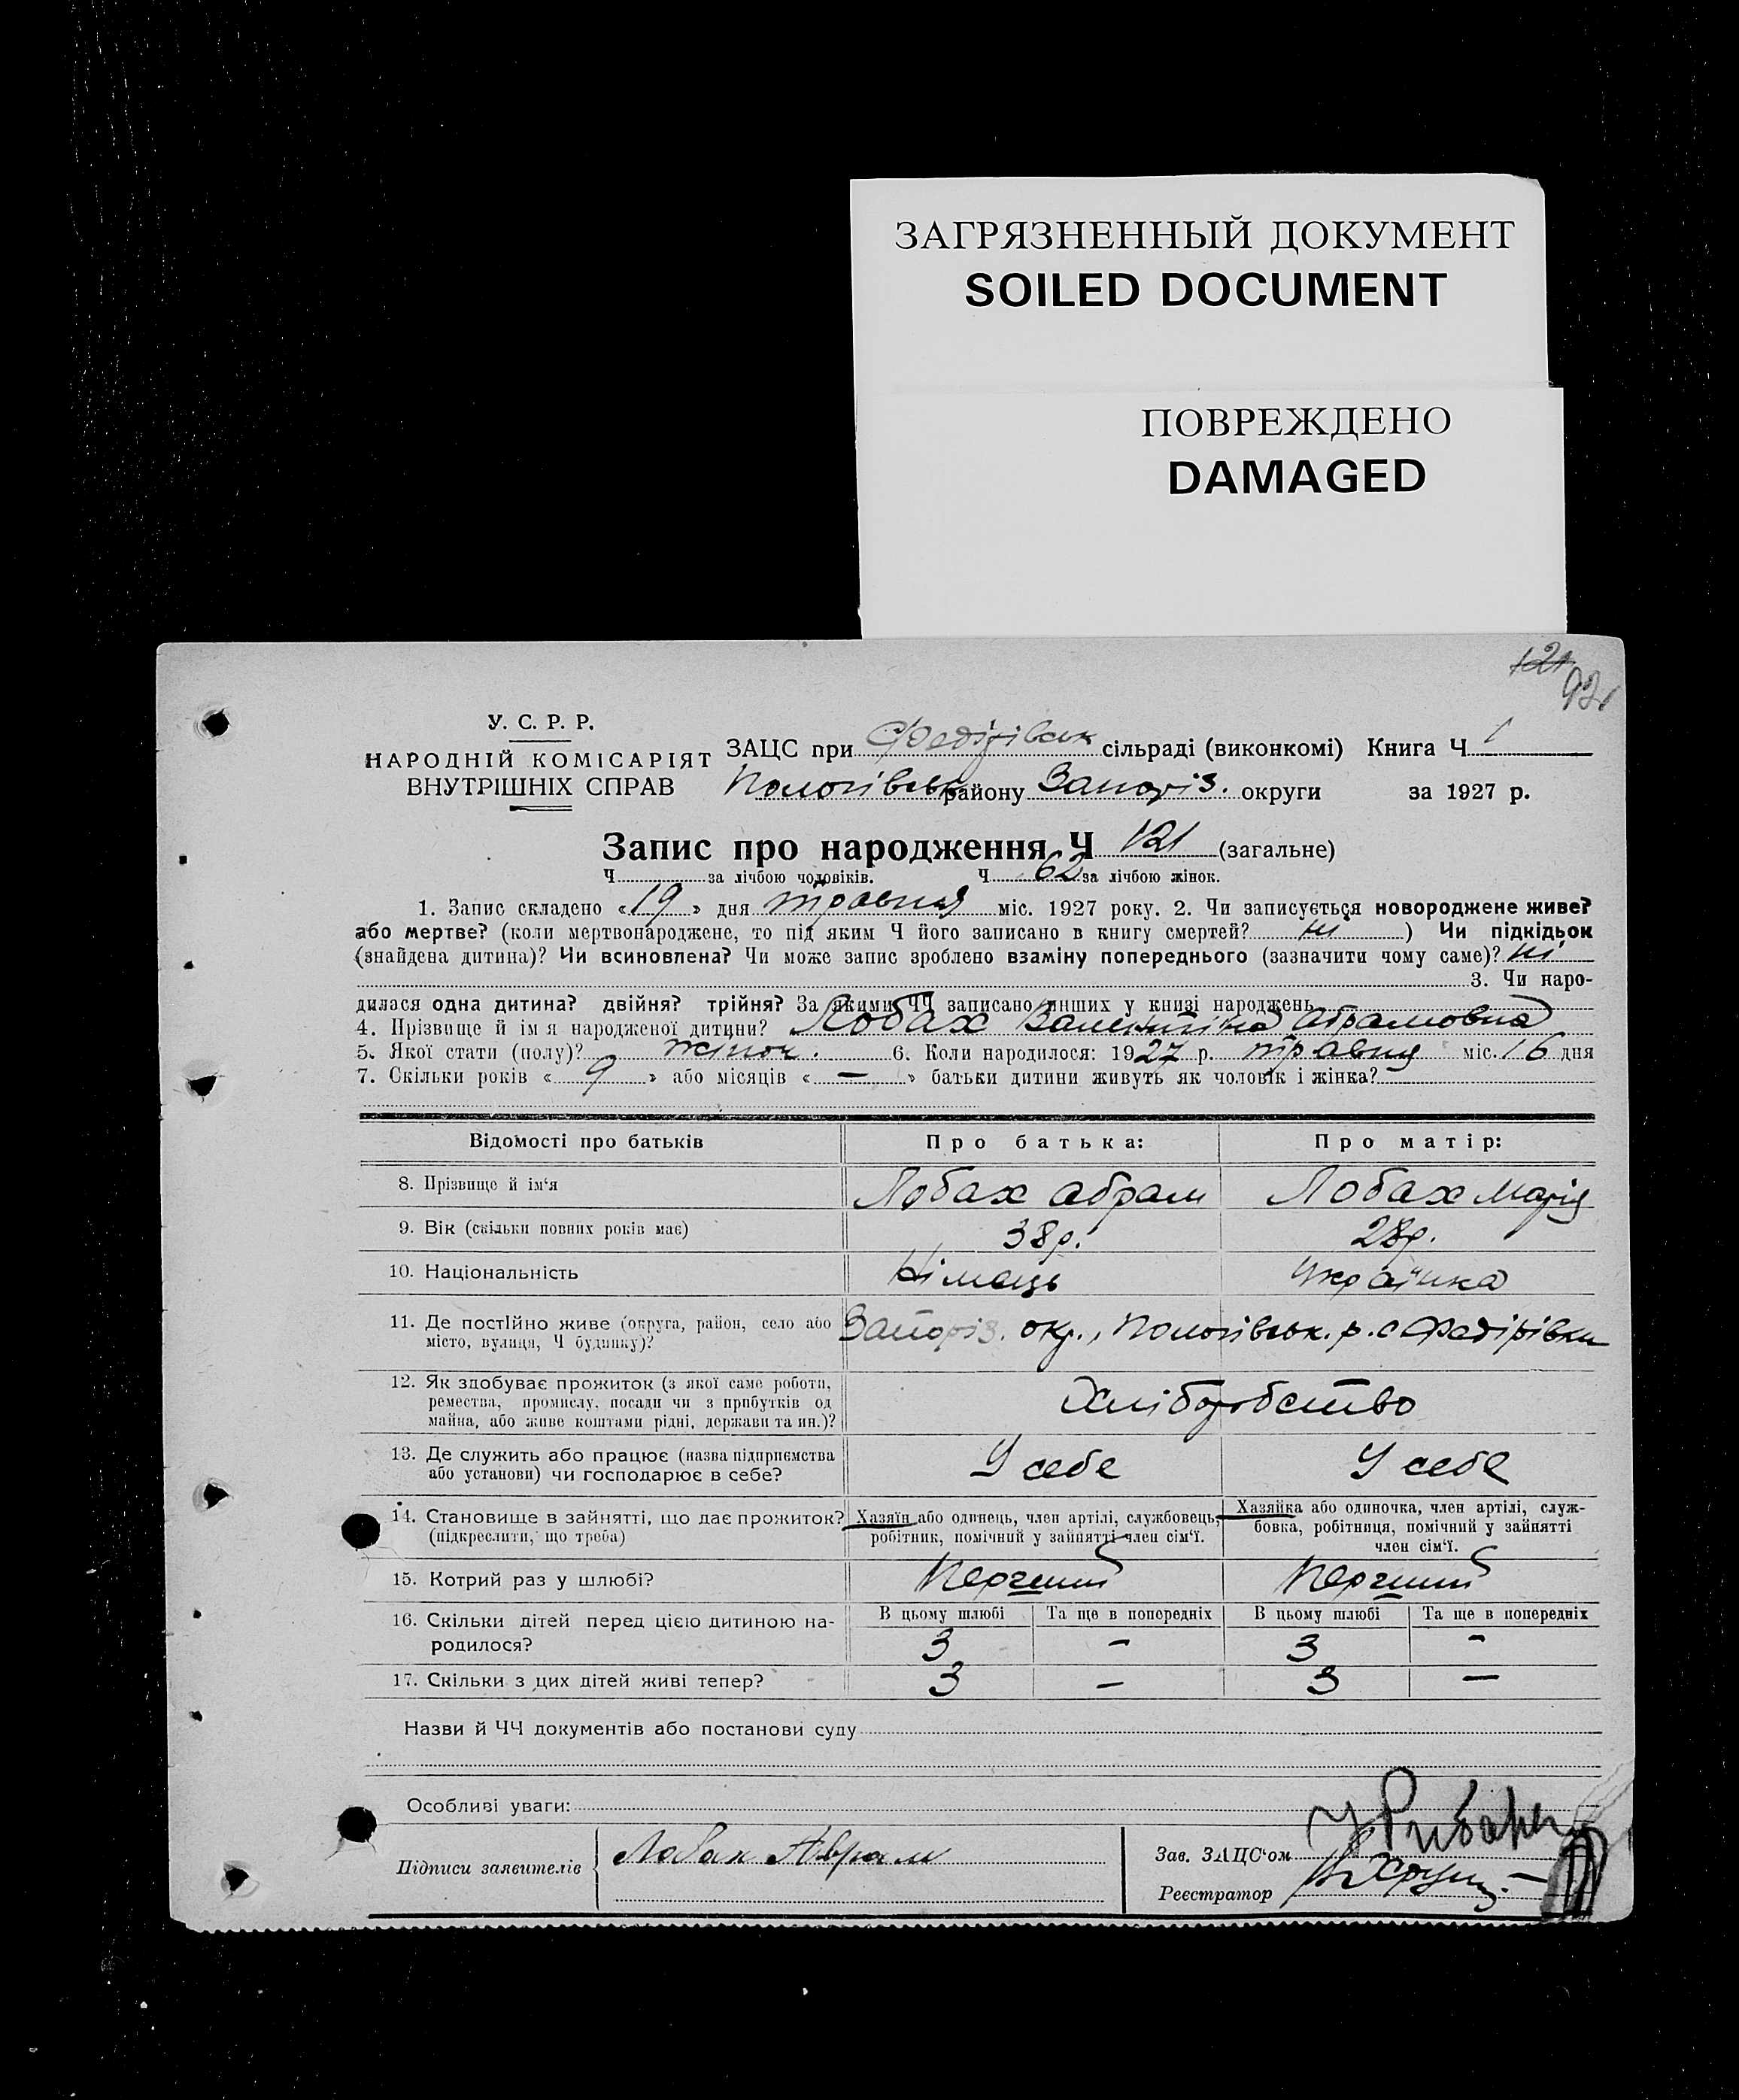 ЗАГРЯЗНЕННЫЙ ДОКУМЕНТ
SOILED DOCUMENT
ПОВРЕЖДЕНО
DAMAGED
121
92
У. С. Р. Р.
НАРОДНІЙ КОМІСАРІЯТ
ВНУТРІШНІХ СПРАВ
ЗАЦС при Федірівськ сільраді (виконкомі) Книга Ч 1
Пологівськ району Запоріз. округи за 1927 р.
Запис про народження Ч 121 (загальне)
Ч за лічбою чоловіків. Ч 62 за лічбою жінок.
1. Запис складено «19» дня травня міс. 1927 року. 2. Чи записується новороджене живе?
або мертве? (коли мертвонароджене, то під яким Ч його записано в книгу смертей? ні ) Чи підкідьок
(знайдена дитина)? Чи всиновлена? Чи може запис зроблено взаміну попереднього (зазначити чому саме)? ні
3. Чи наро-
дилася одна дитина? двійня? трійня? За якими ЧЧ записано инших у книзі народжень
4. Прізвище й ім я народженої дитини? Лобах Валентіна Абрамовна
5. Якої стати (полу)? жіноч. 6. Коли народилося: 1927 р. травня міс. 16 дня
7. Скільки років «9» або місяців «—» батьки дитини живуть як чоловік і жінка?
Відомості про батьків Про батька: Про матір:
8. Прізвище й ім'я Лобах Абрам Лобах Марія
9. Вік (скільки повних років має) 38 р. 28 р.
10. Національність Німець Українка
11. Де постійно живе (округа, район, село або
місто, вулиця, Ч будинку)? Запоріз. окр., Пологівськ. р. с Федірівки
12. Як здобуває прожиток (з якої саме роботи,
ремества, промислу, посади чи з прибутків од
майна, або живе коштами рідні, держави та ин.)? Хліборобство
13. Де служить або працює (назва підприємства
або установи) чи господарює в себе? У себе У себе
14. Становище в зайнятті, що дає прожиток?
(підкреслити, що треба)
Хазяїн або одинець, член артілі, службовець,
робітник, помічний у зайнятті член сім'ї.
Хазяйка або одиночка, член артілі, служ-
бовка, робітниця, помічний у зайнятті
член сім'ї.
15. Котрий раз у шлюбі? Перший Перший
16. Скільки дітей перед цією дитиною на-
родилося?
В цьому шлюбі Та ще в попередніх В цьому шлюбі Та ще в попередніх
3 – 3 –
17. Скільки з цих дітей живі тепер? 3 – 3 —
Назви й ЧЧ документів або постанови суду
Особливі уваги:
Підписи заявителів Лобах Аврам
Зав. ЗАЦС'ом
Реєстратор